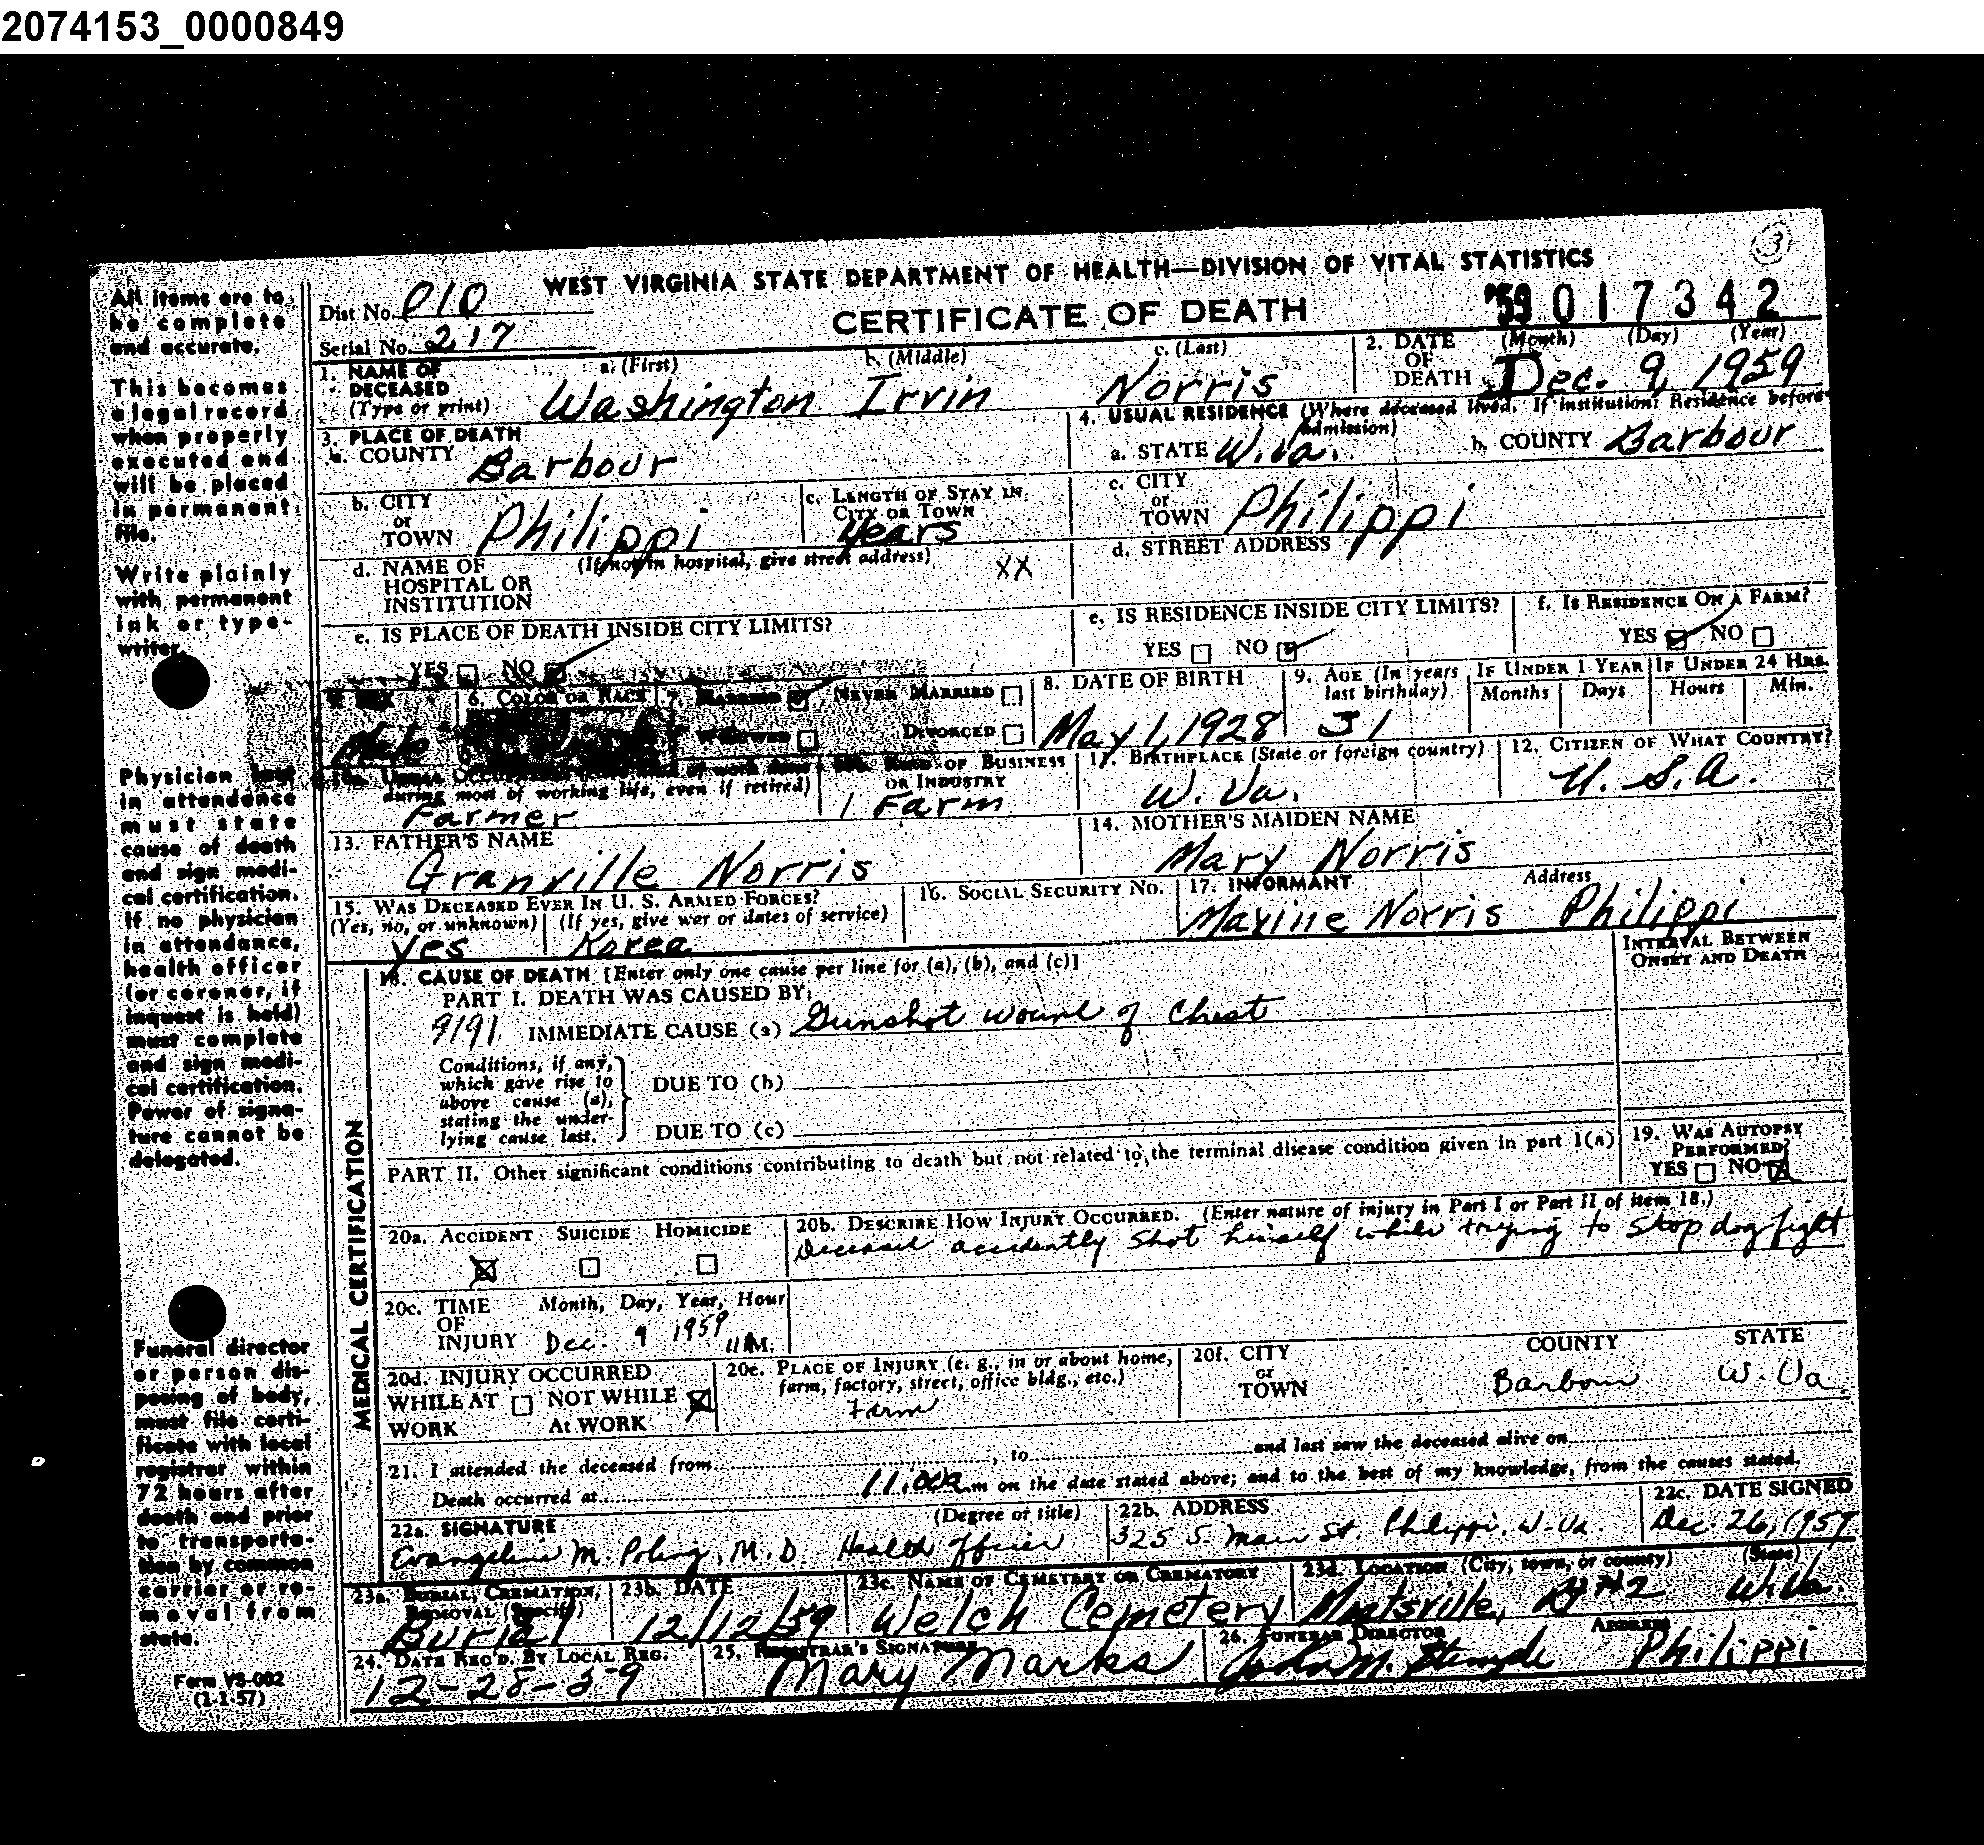 2074153_0000849
WEST VIRGINIA STATE DEPARTMENT OF HEALTH—DIVISION OF VITAL STATISTICS
CERTIFICATE OF DEATH
59 017342
3
Dist No. 010
Serial No. 217
All items are to
be complete
and accurate.
This becomes
a legal record
when properly
executed and
will be placed
in permanent
file.
Write plainly
with permanent
ink or type-
writer.
Physician last
in attendance
must state
cause of death
and sign medi-
cal certification.
If no physician
in attendance,
health officer
(or coroner, if
inquest is held)
must complete
and sign medi-
cal certification.
Power of signa-
ture cannot be
delegated.
Funeral director
or person dis-
posing of body,
must file certi-
ficate with local
registrar within
72 hours after
death and prior
to transporta-
tion by common
carrier or re-
moval from
state.
Form VS-002
(1-1-57)
1. NAME OF DECEASED (Type or print) a. (First) Washington b. (Middle) Irvin c. (Last) Norris
2. DATE OF DEATH (Month) (Day) (Year) Dec. 9, 1959
3. PLACE OF DEATH
a. COUNTY Barbour
4. USUAL RESIDENCE (Where deceased lived. If institution: Residence before admission)
a. STATE W.Va. b. COUNTY Barbour
b. CITY or TOWN Philippi
c. LENGTH OF STAY IN CITY OR TOWN Years
c. CITY or TOWN Philippi
d. NAME OF HOSPITAL OR INSTITUTION (If not in hospital, give street address) XX
d. STREET ADDRESS
e. IS PLACE OF DEATH INSIDE CITY LIMITS?
YES NO
e. IS RESIDENCE INSIDE CITY LIMITS?
YES NO
f. IS RESIDENCE ON A FARM?
YES NO
6. COLOR OR RACE
7. MARRIED NEVER MARRIED
WIDOWED DIVORCED
8. DATE OF BIRTH May 1, 1928
9. AGE (In years last birthday) 31
IF UNDER 1 YEAR Months Days
IF UNDER 24 HRS. Hours Min.
10a. USUAL OCCUPATION (Give kind of work done during most of working life, even if retired) Farmer
10b. KIND OF BUSINESS OR INDUSTRY Farm
11. BIRTHPLACE (State or foreign country) W. Va.
12. CITIZEN OF WHAT COUNTRY? U. S. A.
13. FATHER'S NAME Granville Norris
14. MOTHER'S MAIDEN NAME Mary Norris
15. WAS DECEASED EVER IN U. S. ARMED FORCES?
(Yes, no, or unknown) yes (If yes, give war or dates of service) Korea
16. SOCIAL SECURITY NO.
17. INFORMANT Maxine Norris Address Philippi
MEDICAL CERTIFICATION
18. CAUSE OF DEATH [Enter only one cause per line for (a), (b), and (c)]
INTERVAL BETWEEN ONSET AND DEATH
PART I. DEATH WAS CAUSED BY:
9191 IMMEDIATE CAUSE (a) Gunshot wound of Chest
Conditions, if any, which gave rise to above cause (a), stating the under-lying cause last.
DUE TO (b)
DUE TO (c)
PART II. Other significant conditions contributing to death but not related to the terminal disease condition given in part I(a)
19. WAS AUTOPSY PERFORMED?
YES NO
20a. ACCIDENT SUICIDE HOMICIDE
20b. DESCRIBE HOW INJURY OCCURRED. (Enter nature of injury in Part I or Part II of item 18.)
Deceased accidently shot himself while trying to stop dog fight
20c. TIME OF INJURY Month, Day, Year, Hour
Dec. 9 1959 11 A.M.
20d. INJURY OCCURRED
WHILE AT WORK NOT WHILE At WORK
20e. PLACE OF INJURY (e. g., in or about home, farm, factory, street, office bldg., etc.)
Farm
20f. CITY or TOWN COUNTY Barbour STATE W. Va.
21. I attended the deceased from , to and last saw the deceased alive on
Death occurred at 11.00a.m on the date stated above; and to the best of my knowledge, from the causes stated.
22a. SIGNATURE (Degree or title) Evangeline M. Poling, M.D. Health Officer
22b. ADDRESS 325 S. Main St. Philippi, W-Va.
22c. DATE SIGNED Dec. 26, 1959
23a. BURIAL, CREMATION, REMOVAL (Specify) Burial
23b. DATE 12/12/59
23c. NAME OF CEMETERY OR CREMATORY Welch Cemetery
23d. LOCATION (City, town, or county) (State) #2 W.Va.
24. DATE REC'D. BY LOCAL REG. 12-28-59
25. REGISTRAR'S SIGNATURE Mary Marks
26. FUNERAL DIRECTOR ADDRESS Philippi